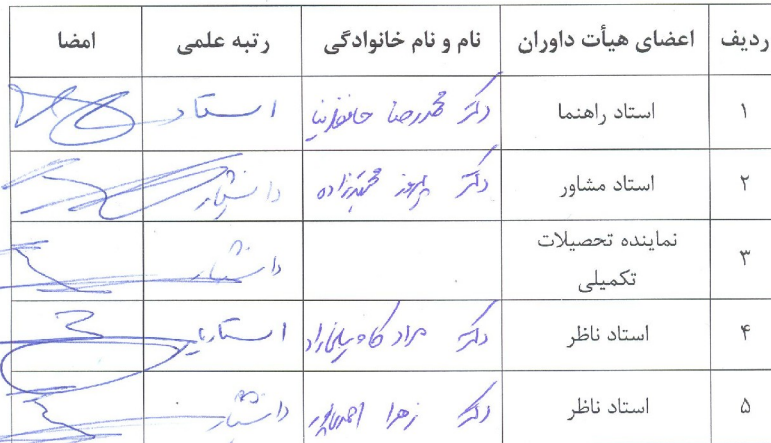 ردیف اعضای هیأت داوران نام و نام خانوادگی رتبه علمی امضا
۱ استاد راهنما دکتر محمدرضا حافظ‌نیا استاد
۲ استاد مشاور دکتر محمدزاده دانشیار
۳ نماینده تحصیلات تکمیلی دانشیار
۴ استاد ناظر دکتر مراد کاویانی‌راد استادیار
۵ استاد ناظر دکتر زهرا احمدی‌پور دانشیار